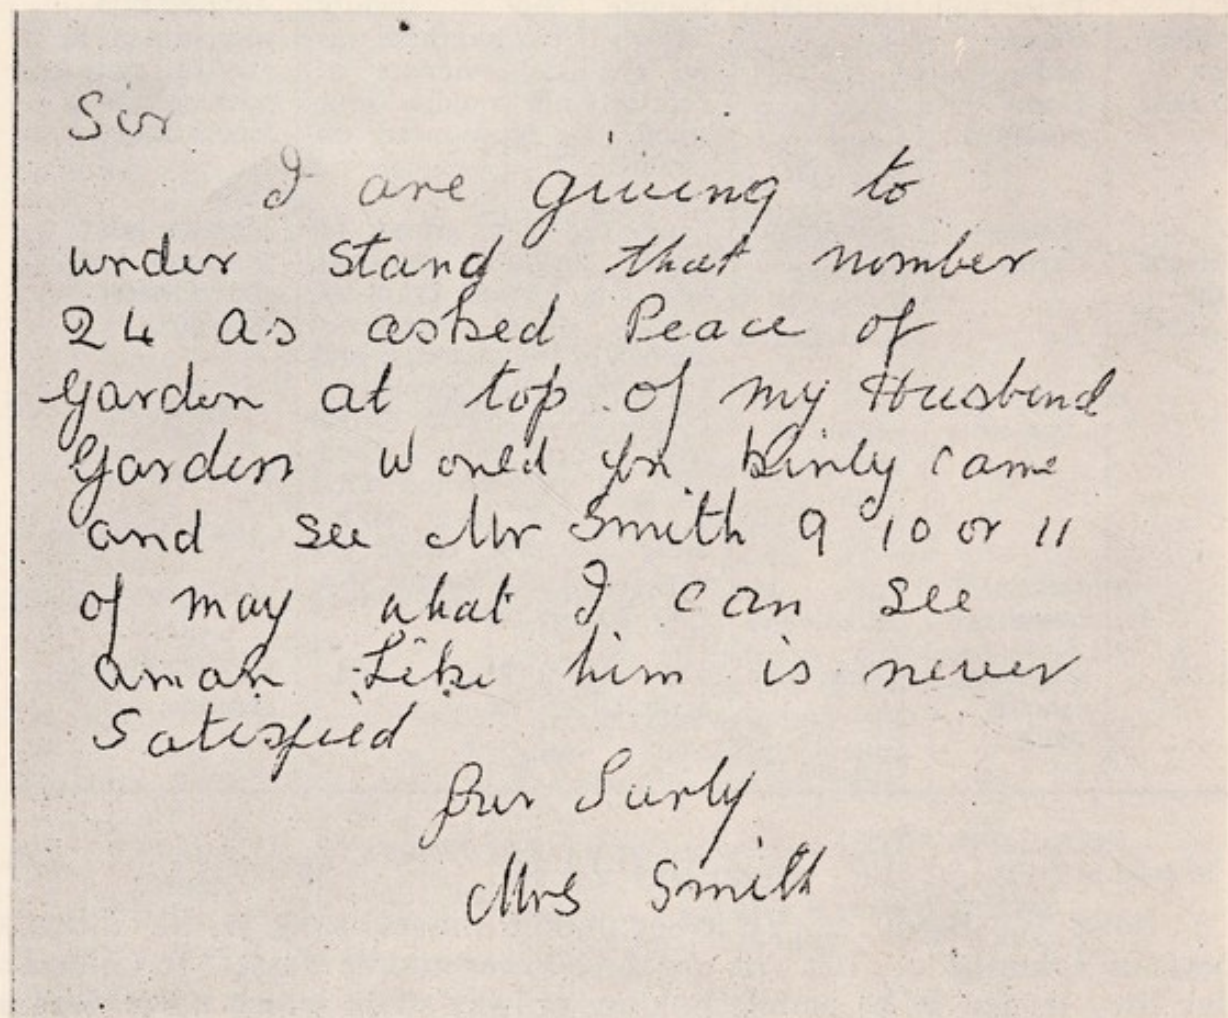 Sir
I are giving to
under stand that nomber
24 as asked Peace of
Garden at top of my Husbend
Garden Would you kinly came
and see Mr Smith 9 10 or 11
of may what I can see
aman Like him is never
Satisfied
your Surly
Mrs Smith